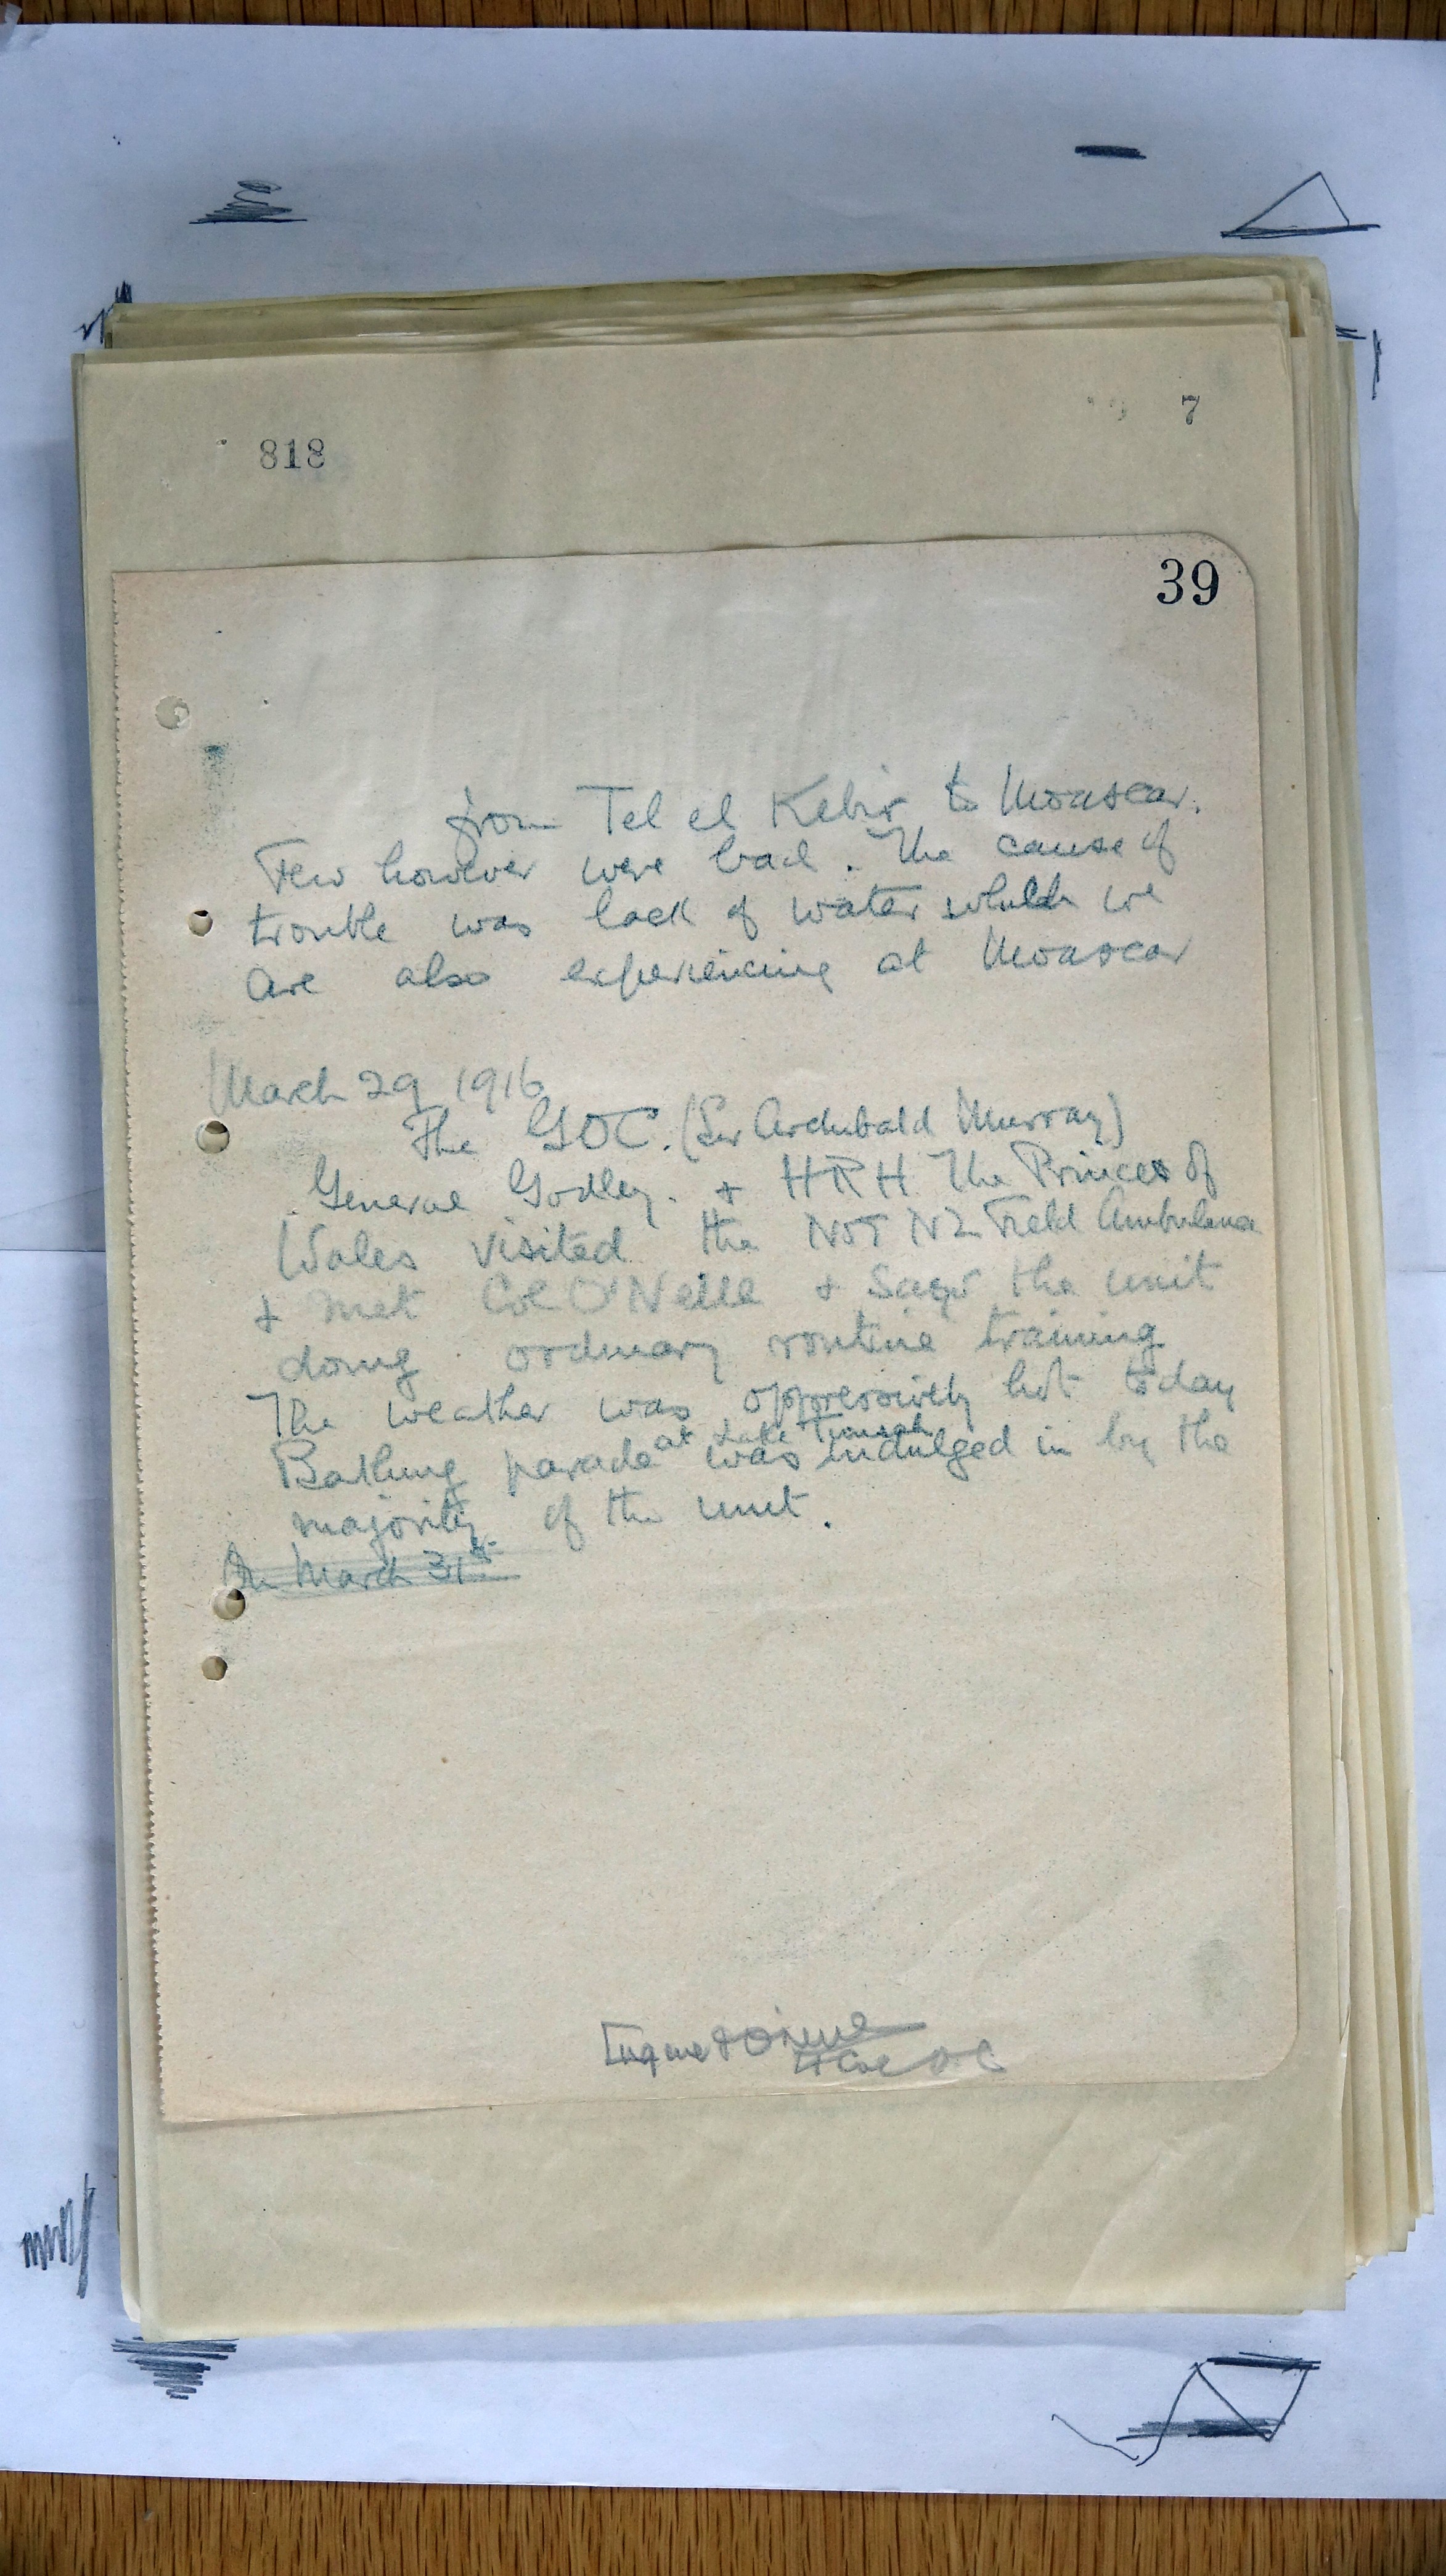 7
818
39
from Tel el Kebir to Moascar.
Few however were bad. The cause of
trouble was lack of water which we
are also experiencing at Moascar
March 29 1916
The GOC. (Sir Archibald Murray)
General Godley. + HRH The Prince of
Wales visited the No 1 NZ Field Ambulance
+ met Col O'Neill + saw the unit
doing ordinary routine training
The weather was oppressively hot today
Bathing parade at Lake Timsah was indulged in by the
majority of the unit.
On March 31st
Eugene J O'Neill
Lt Col OC